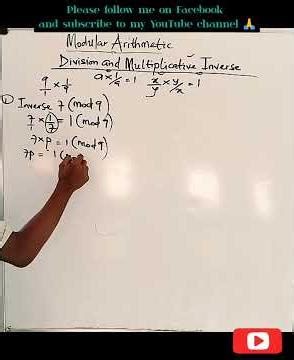 Please follow me on Facebook
and subscribe to my YouTube channel 🙏
Modular Arithmetic
Division and Multiplicative Inverse
9/1 × 1/9 a × 1/a = 1 x/y × y/x = 1
① Inverse 7 (mod 9)
7/1 × 1/7 = 1 (mod 9)
7 × p = 1 (mod 9)
7p = 1 (m